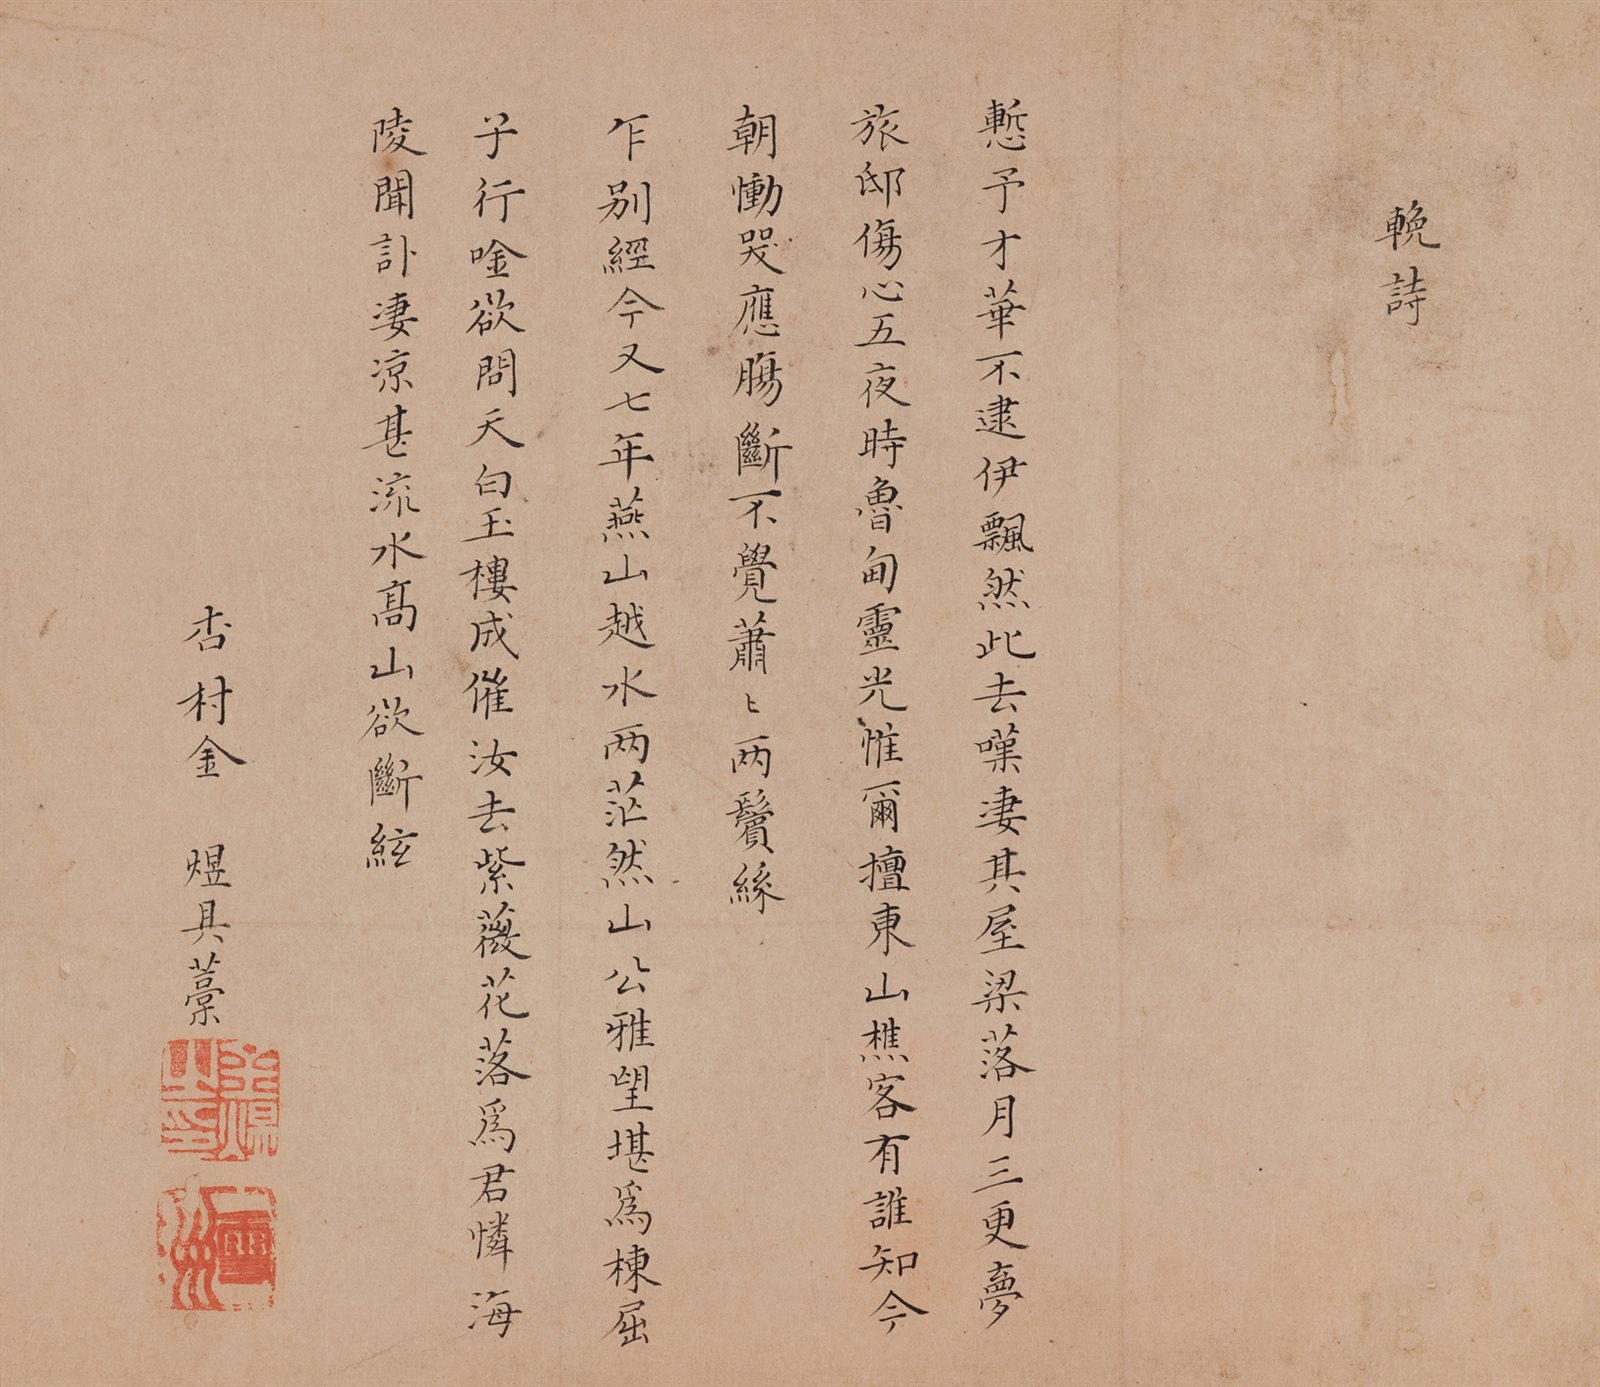 輓詩
慙予才華不逮伊飄然此去嘆凄其屋梁落月三更夢
旅邸傷心五夜時魯甸靈光惟爾擅東山樵客有誰知今
朝慟哭應腸斷不覺蕭〻兩鬢絲
乍别經今又七年燕山越水兩茫然山公雅望堪爲棟屈
子行唫欲問天白玉樓成催汝去紫薇花落爲君憐海
陵聞訃凄凉甚流水髙山欲斷絃
杏村金 煜具藁